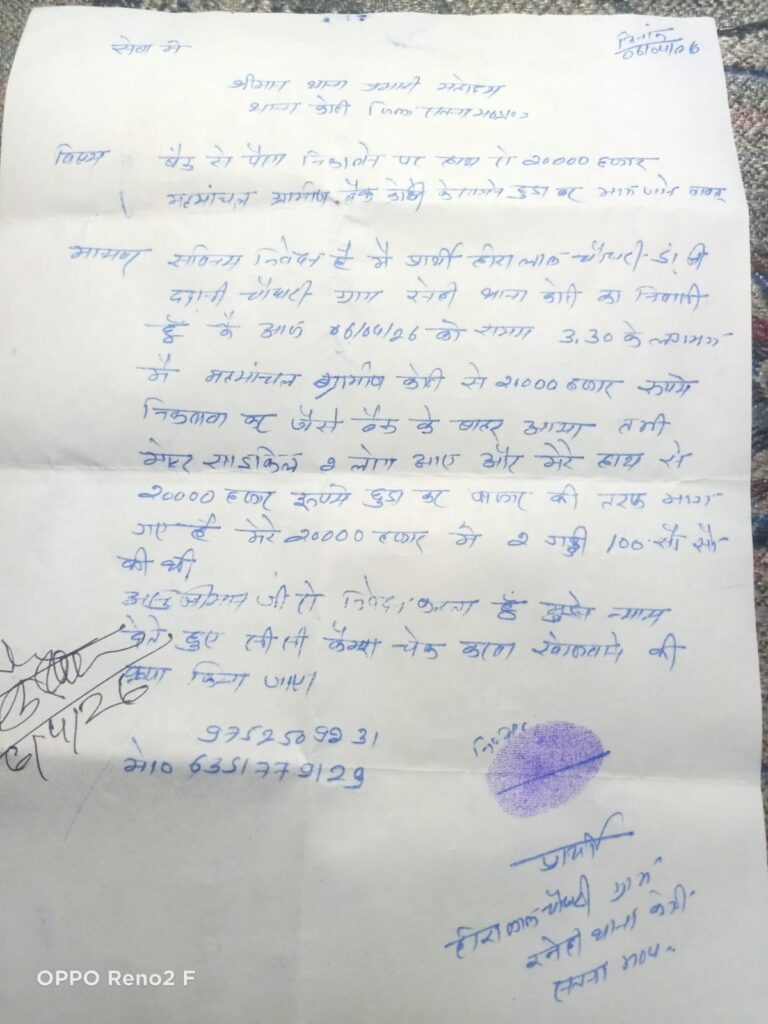 सेवा में
दिनांक
06/04/26
श्रीमान थाना प्रभारी महोदय
थाना कोठी जिला सतना म०प्र०
विषय बैंक से पैसा निकालने पर हाथ से 20000 हजार
ग्रामीण बैंक कोठी के सामने छुडा कर भाग जाने बावत्
मान्यवर सविनय निवेदन है मै प्रार्थी हीरालाल चौधरी
चौधरी ग्राम थाना कोठी का निवासी
हूँ कै आज 06/04/26 को समय 3.30 के लगभग
मै ग्रामीण कोठी से 20000 हजार रूपये
निकलवा कर जैसे बैंक के बाहर आया तभी
मोटर साइकिल 2 लोग आए और मेरे हाथ से
20000 हजार रूपये छुडा कर बाजार की तरफ भाग
गए है मेरे 20000 हजार मे 2 गड्डी 100 सौ सौ
की थी
अतः श्रीमान जी से निवेदन करता हूँ मुझे न्याय
देते हुए सी सी कैमरा चेक करवा की
कृपा किया जाए।
मो0 6351772129
प्रार्थी
हीरालाल चौधरी ग्राम
थाना कोठी
सतना म०प्र०
OPPO Reno2 F